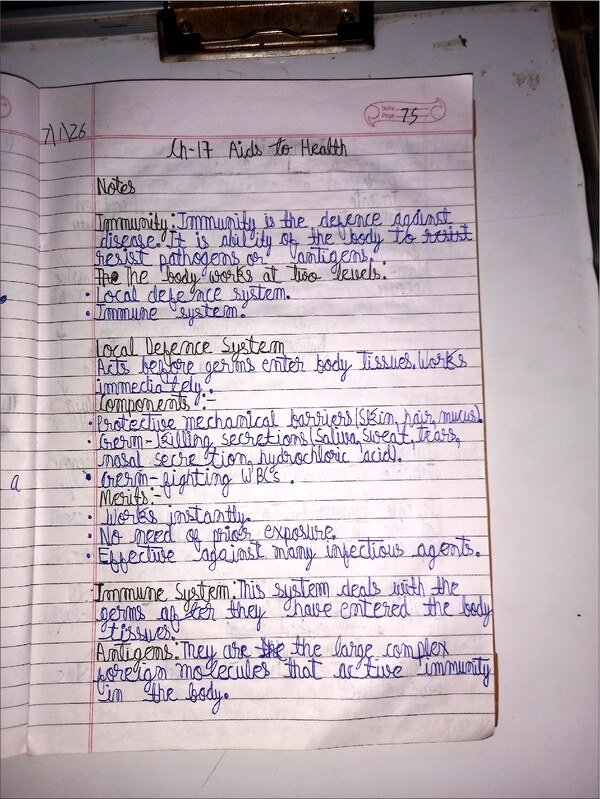 Date
Page 75
7/1/26
Ch-17 Aids to Health
Notes
Immunity: Immunity is the defence against
disease. It is ability of the body to resist
resist pathogens or antigens.
The The body works at two levels:
• Local defence system.
• Immune system.
Local Defence System
Acts before germs enter body tissues. Works
immediately.
Components :-
• Protective mechanical barriers (Skin, hair, mucus).
• Germ-killing secretions (Saliva, sweat, tears,
nasal secretion, hydrochloric acid).
• Germ-fighting WBCs.
Merits:-
• Works instantly.
• No need of prior exposure.
• Effective against many infectious agents.
Immune System: This system deals with the
germs after they have entered the body
tissues.
Antigens: They are the the large complex
foreign molecules that active immunity
in the body.
a